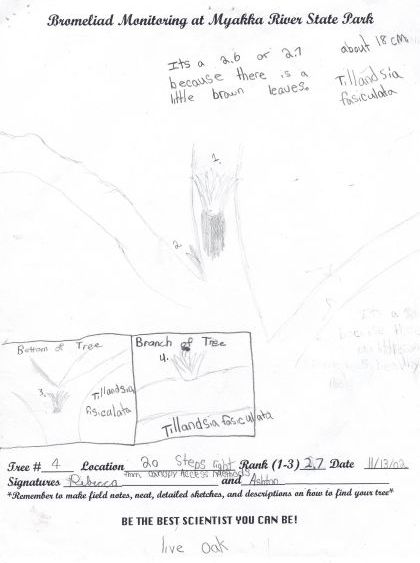 Bromeliad Monitoring at Myakka River State Park
Its a 2.6 or 2.7
because there is a
little brown leaves.
about 18 cm
Tillandsia
fasiculata
1.
2.
Bottom of Tree
3.
Tillandsia
fasiculata
Branch of Tree
4.
Tillandsia fasiculata
Tree # 4 Location 20 Steps right Rank (1-3) 2.7 Date 11/13/02
from canopy access
Signatures Rebecca and Ashton
*Remember to make field notes, neat, detailed sketches, and descriptions on how to find your tree*
BE THE BEST SCIENTIST YOU CAN BE!
live oak